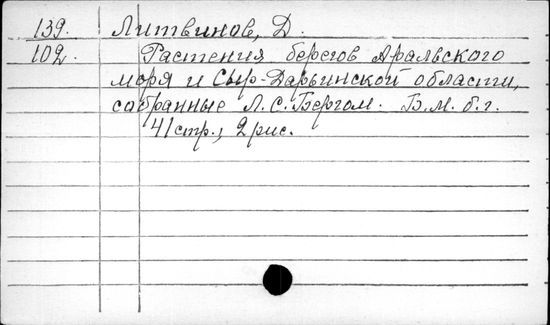 139. Литвинов, Д.
102. Растения берегов Аральского
моря и Сыр-Дарьинской области,
собранные Л.С. Бергом. Б.м. б.г.
41 стр., 2 рис.